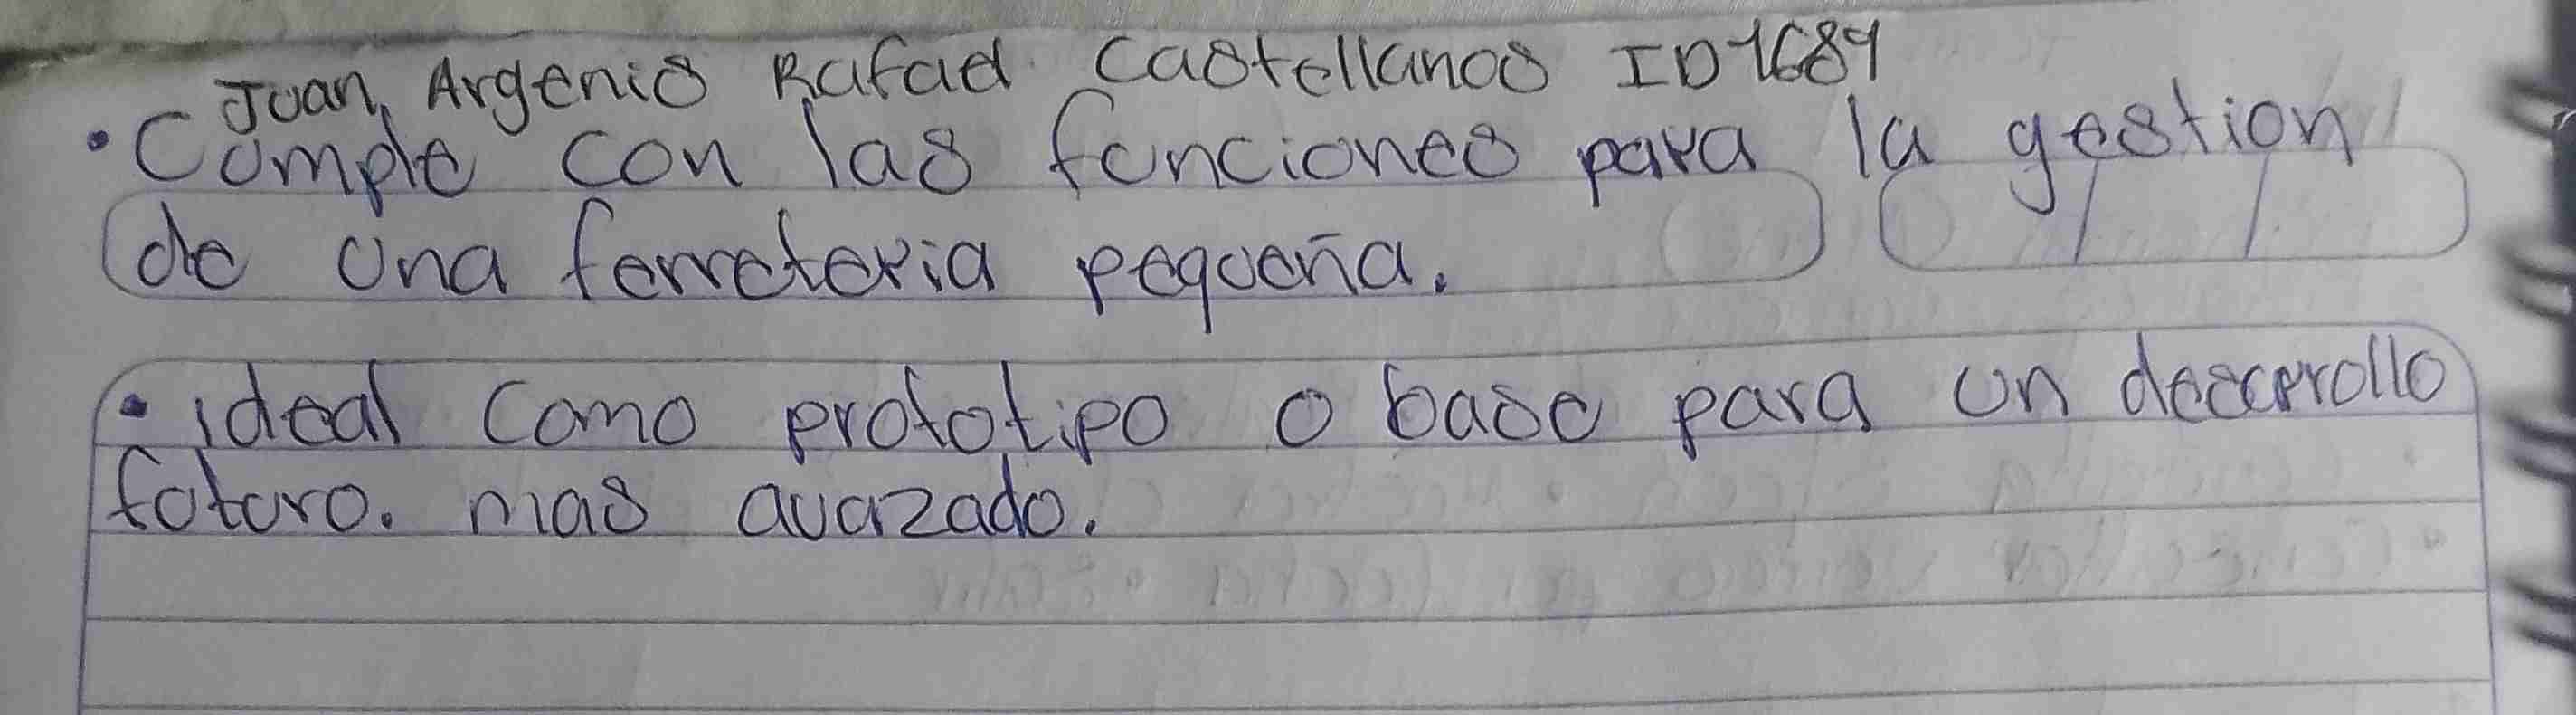 Juan Argenis Rafael Castellanos ID 1689
• Cumple con las funciones para la gestion
de una ferreteria pequeña.
• ideal como prototipo o base para un desarrollo
futuro. mas avazado.